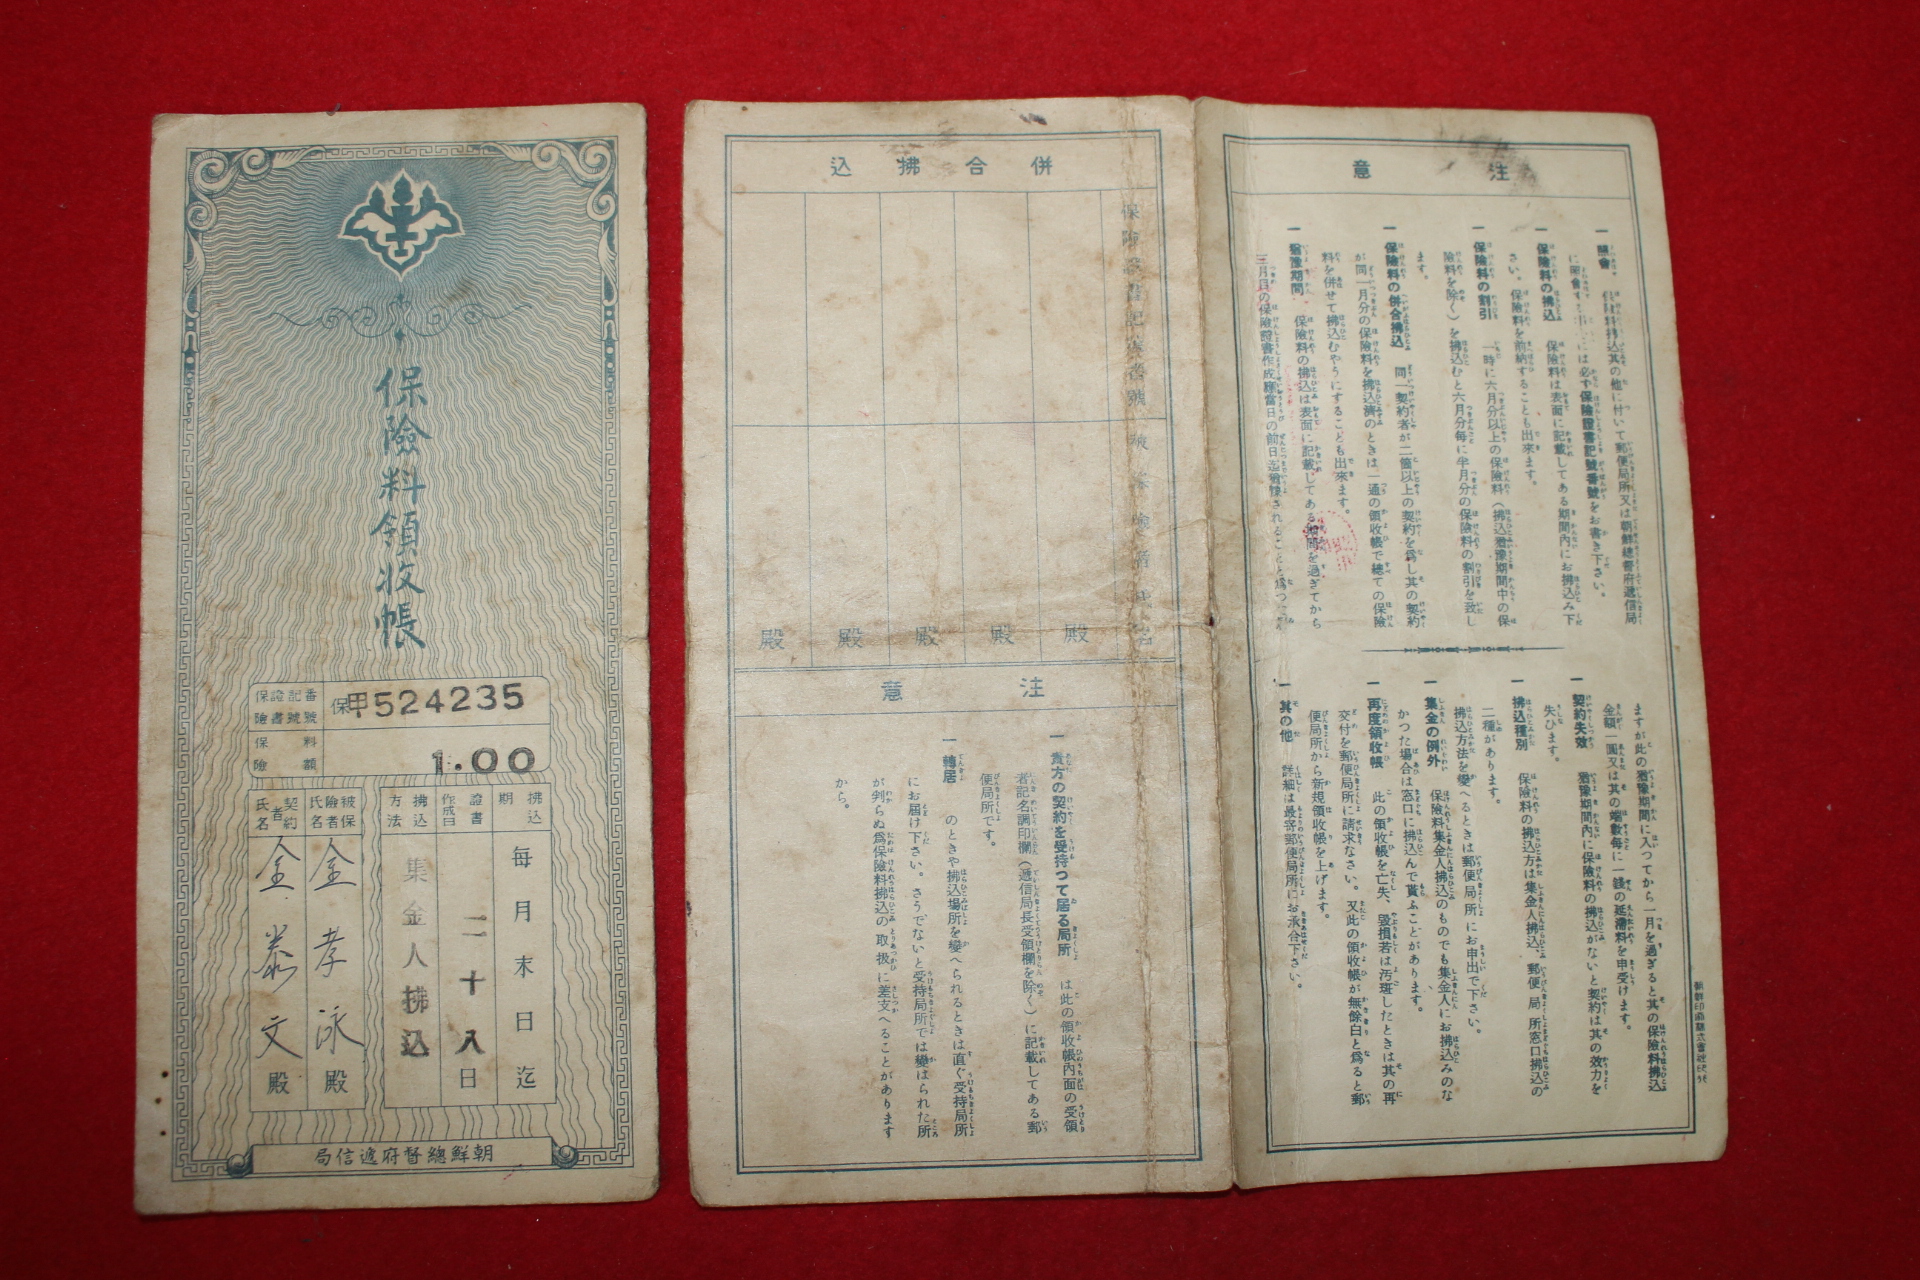 保險料領收帳
保險證書記號番號
保甲524235
保險料額
1.00
拂込期
每月末日迄
證書作成日
二十八日
拂込方法
集金人拂込
被保險者氏名
金孝泳殿
契約者氏名
金泰文殿
朝鮮總督府遞信局
併合拂込
保險證書記號番號
被保險者氏名
殿
殿
殿
殿
殿
注意
一 貴方の契約を受持つて居る局所 は此の領收帳內面の受領
者記名調印欄(遞信局長受領欄を除く)に記載してある郵
便局所です。
一 轉居 のときや拂込場所を變へられるときは直ぐ受持局所
にお屆け下さい。さうでないと受持局所では變はられた所
が判らぬ爲保險料拂込の取扱に差支へることがあります
から。
注意
一 照會 保險料拂込其の他に付いて郵便局所又は朝鮮總督府遞信局
には必ず保險證書記號番號をお書き下さい。
一 保險料の拂込 保險料は表面に記載してある期間內にお拂込み下
さい。保險料を前納することも出來ます。
一 保險料の割引 一時に六月分以上の保險料(拂込猶豫期間中の保
險料を除く)を拂込むと六月分每に半月分の保險料の割引を致し
ます。
一 保險料の併合拂込 同一契約者が二箇以上の契約を爲し其の契約
が同一月分の保險料を拂込濟のときは一通の領收帳で總ての保險
料を併せて拂込むやうにすることも出來ます。
一 猶豫期間 保險料の拂込は表面に記載してある期間を過ぎてから
三月目の保險證書作成應當日の前日迄猶豫されることと爲つて居
ますが此の猶豫期間に入つてから一月を過ぎると其の保險料拂込
金額一圓又は其の端數每に一錢の延滯料を申受けます。
一 契約失效 猶豫期間內に保險料の拂込がないと契約は其の效力を
失ひます。
一 拂込種別 保險料の拂込方は集金人拂込、郵便局所窓口拂込の
二種があります。
拂込方法を變へるときは郵便局所にお申出で下さい。
一 集金の例外 保險料集金人拂込のものでも集金人にお拂込みのな
かつた場合は窓口に拂込んで貰ふことがあります。
一 再度領收帳 此の領收帳を亡失、毀損若は汚斑したときは其の再
交付を郵便局所に請求なさい。又此の領收帳が無餘白と爲ると郵
便局所から新規領收帳を上げます。
一 其の他 詳細は最寄郵便局所にお承合下さい。
朝鮮印刷株式會社